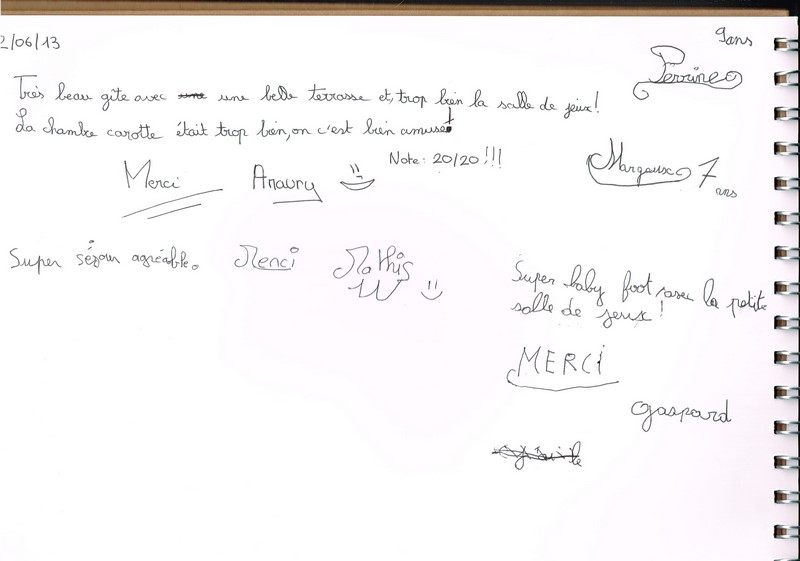 2/06/13
9 ans
Perrine
Très beau gîte avec une belle terrasse et, trop bien la salle de jeux!
La chambre carotte était trop bien, on c'est bien amusé!
Note: 20/20 !!!
Merci Amaury
Margaux 7 ans
Super séjour agréable. Merci Mathis
Super baby foot, avec la petite
salle de jeux!
MERCI
gaspard